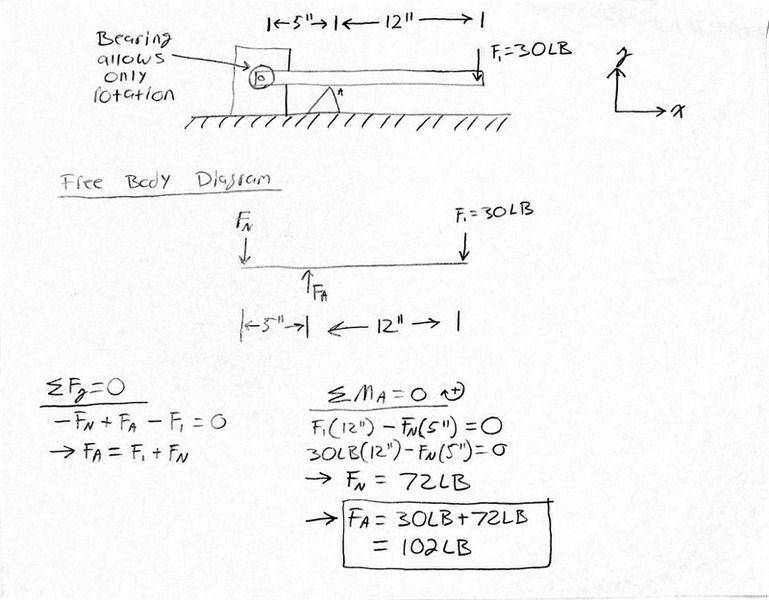 5" 12"
Bearing
allows
only
rotation
F₁=30LB
A
y
x
Free Body Diagram
F_N
F₁=30LB
F_A
5" 12"
ΣF_y=0
-F_N + F_A - F₁ = 0
→ F_A = F₁ + F_N
ΣM_A = 0 ↻+
F₁(12") - F_N(5") = 0
30LB(12") - F_N(5") = 0
→ F_N = 72LB
→ F_A = 30LB + 72LB
= 102LB